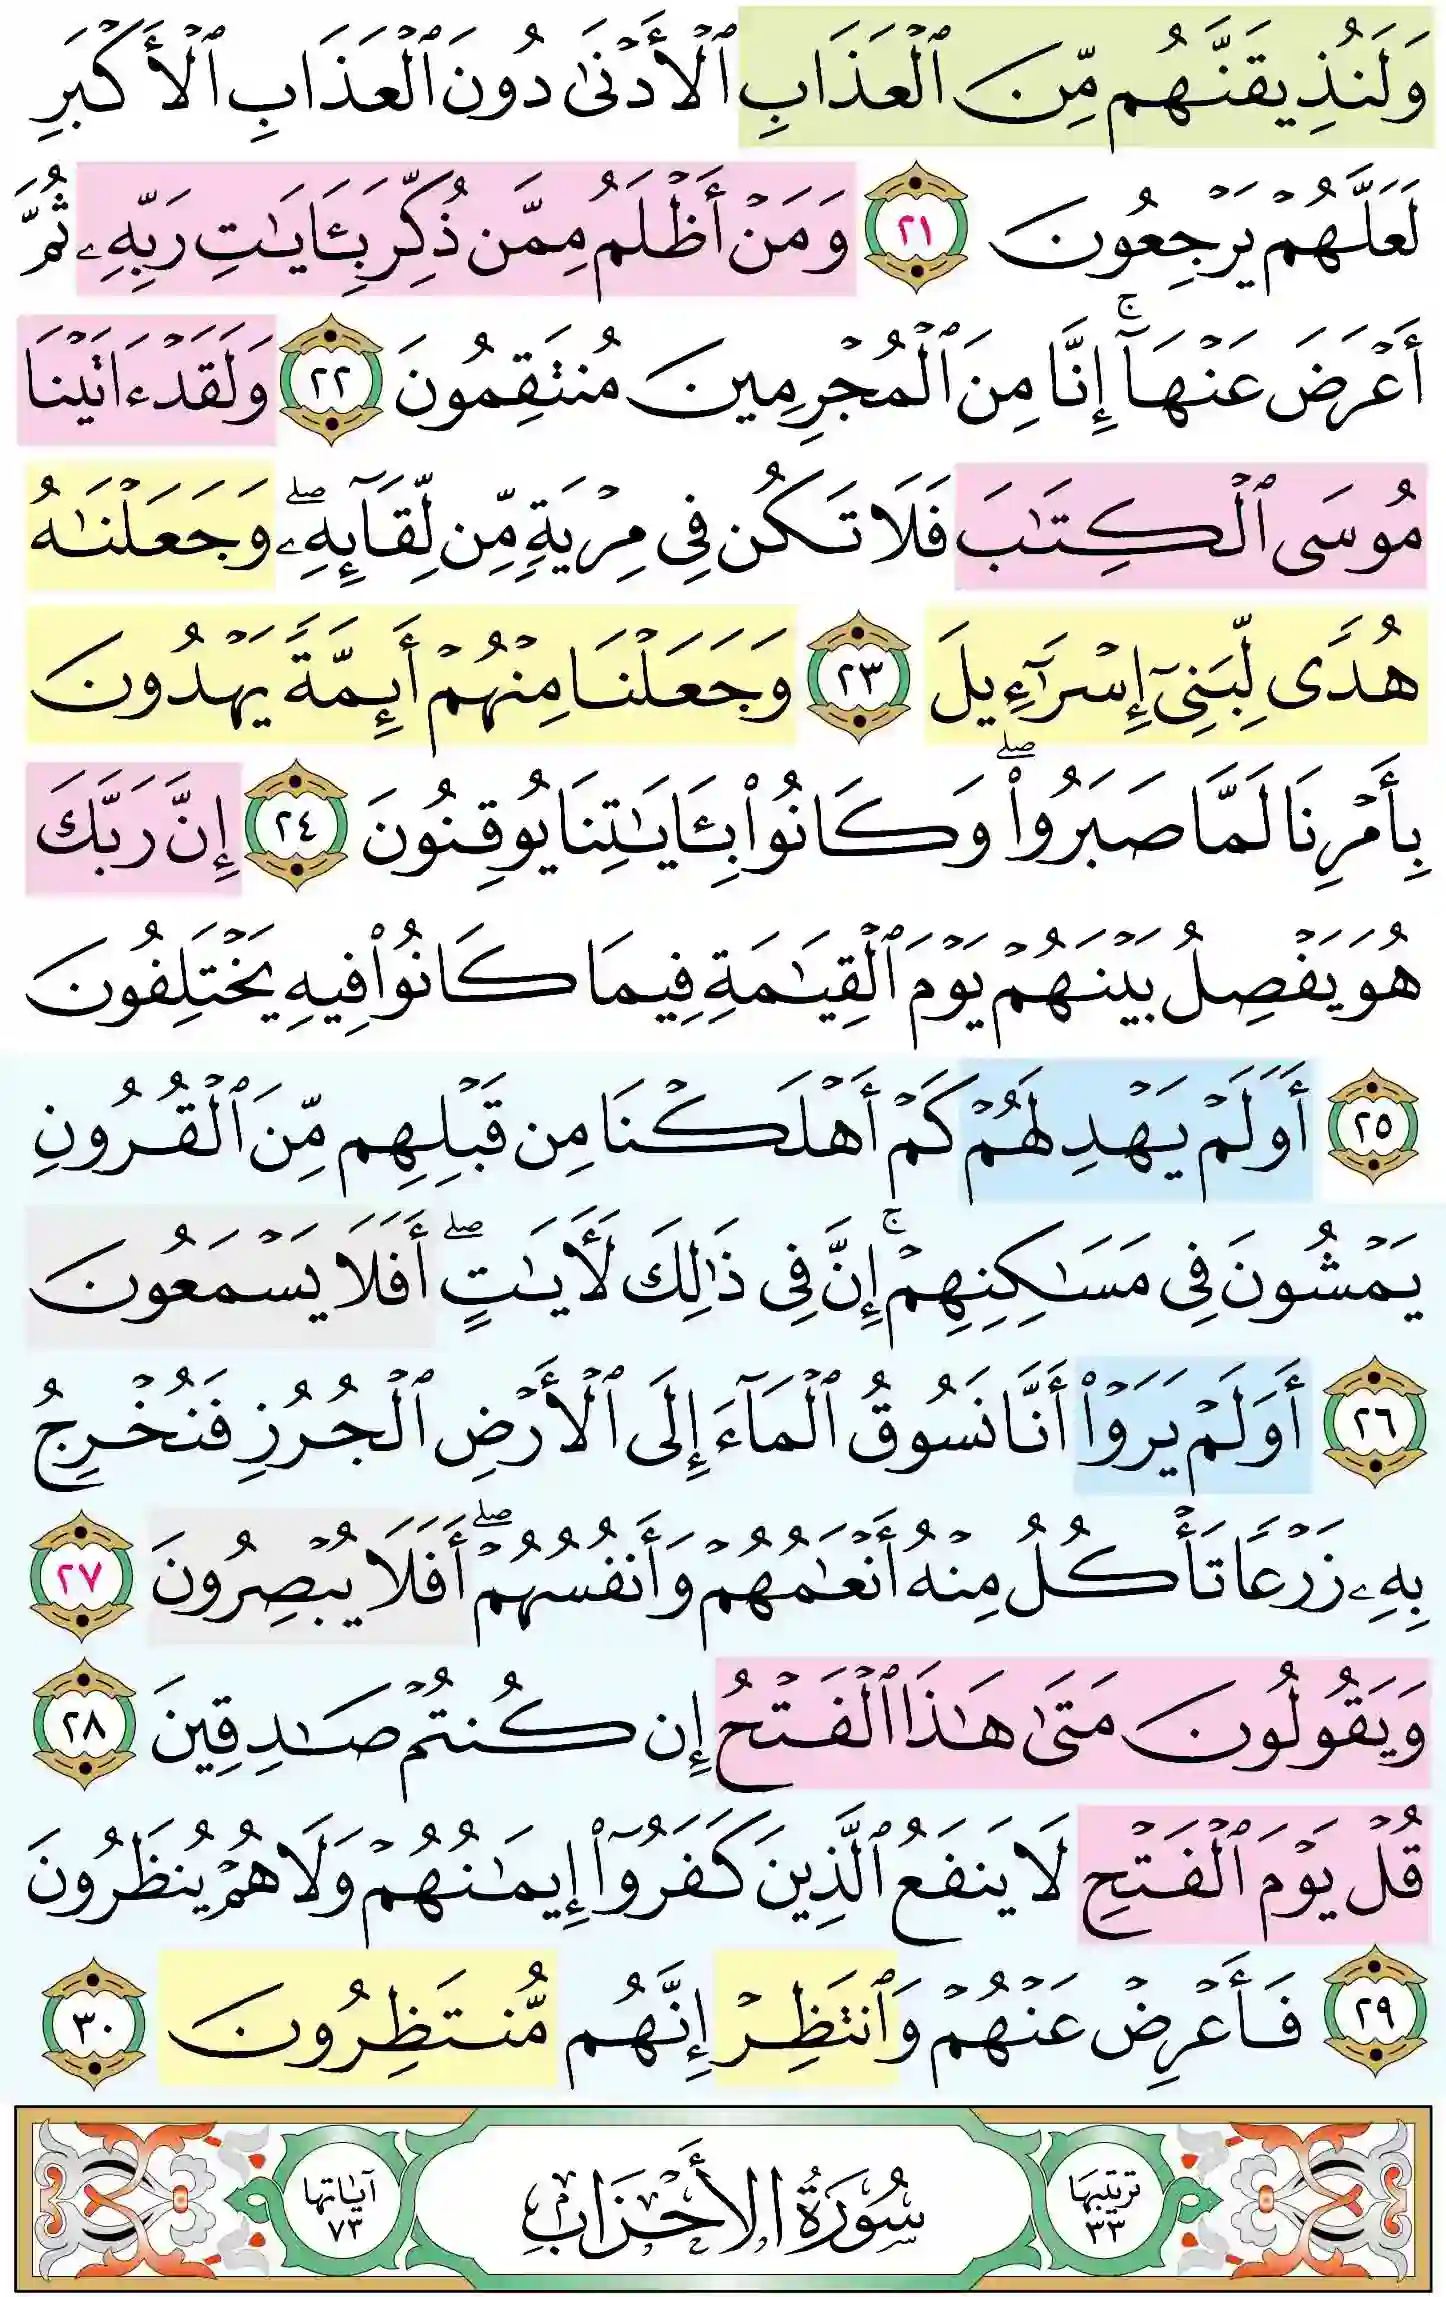 وَلَنُذِيقَنَّهُم مِّنَ ٱلْعَذَابِ ٱلْأَدْنَىٰ دُونَ ٱلْعَذَابِ ٱلْأَكْبَرِ
لَعَلَّهُمْ يَرْجِعُونَ ٢١ وَمَنْ أَظْلَمُ مِمَّن ذُكِّرَ بِـَٔايَٰتِ رَبِّهِۦ ثُمَّ
أَعْرَضَ عَنْهَآ ۚ إِنَّا مِنَ ٱلْمُجْرِمِينَ مُنتَقِمُونَ ٢٢ وَلَقَدْ ءَاتَيْنَا
مُوسَى ٱلْكِتَٰبَ فَلَا تَكُن فِى مِرْيَةٍ مِّن لِّقَآئِهِۦ ۖ وَجَعَلْنَٰهُ
هُدًى لِّبَنِىٓ إِسْرَٰٓءِيلَ ٢٣ وَجَعَلْنَا مِنْهُمْ أَئِمَّةً يَهْدُونَ
بِأَمْرِنَا لَمَّا صَبَرُوا۟ ۖ وَكَانُوا۟ بِـَٔايَٰتِنَا يُوقِنُونَ ٢٤ إِنَّ رَبَّكَ
هُوَ يَفْصِلُ بَيْنَهُمْ يَوْمَ ٱلْقِيَٰمَةِ فِيمَا كَانُوا۟ فِيهِ يَخْتَلِفُونَ
٢٥ أَوَلَمْ يَهْدِ لَهُمْ كَمْ أَهْلَكْنَا مِن قَبْلِهِم مِّنَ ٱلْقُرُونِ
يَمْشُونَ فِى مَسَٰكِنِهِمْ ۚ إِنَّ فِى ذَٰلِكَ لَـَٔايَٰتٍ ۖ أَفَلَا يَسْمَعُونَ
٢٦ أَوَلَمْ يَرَوْا۟ أَنَّا نَسُوقُ ٱلْمَآءَ إِلَى ٱلْأَرْضِ ٱلْجُرُزِ فَنُخْرِجُ
بِهِۦ زَرْعًا تَأْكُلُ مِنْهُ أَنْعَٰمُهُمْ وَأَنفُسُهُمْ ۖ أَفَلَا يُبْصِرُونَ ٢٧
وَيَقُولُونَ مَتَىٰ هَٰذَا ٱلْفَتْحُ إِن كُنتُمْ صَٰدِقِينَ ٢٨
قُلْ يَوْمَ ٱلْفَتْحِ لَا يَنفَعُ ٱلَّذِينَ كَفَرُوٓا۟ إِيمَٰنُهُمْ وَلَا هُمْ يُنظَرُونَ
٢٩ فَأَعْرِضْ عَنْهُمْ وَٱنتَظِرْ إِنَّهُم مُّنتَظِرُونَ ٣٠
ترتيبها
٣٣
سُورَةُ الأَحْزَابِ
آياتها
٧٣